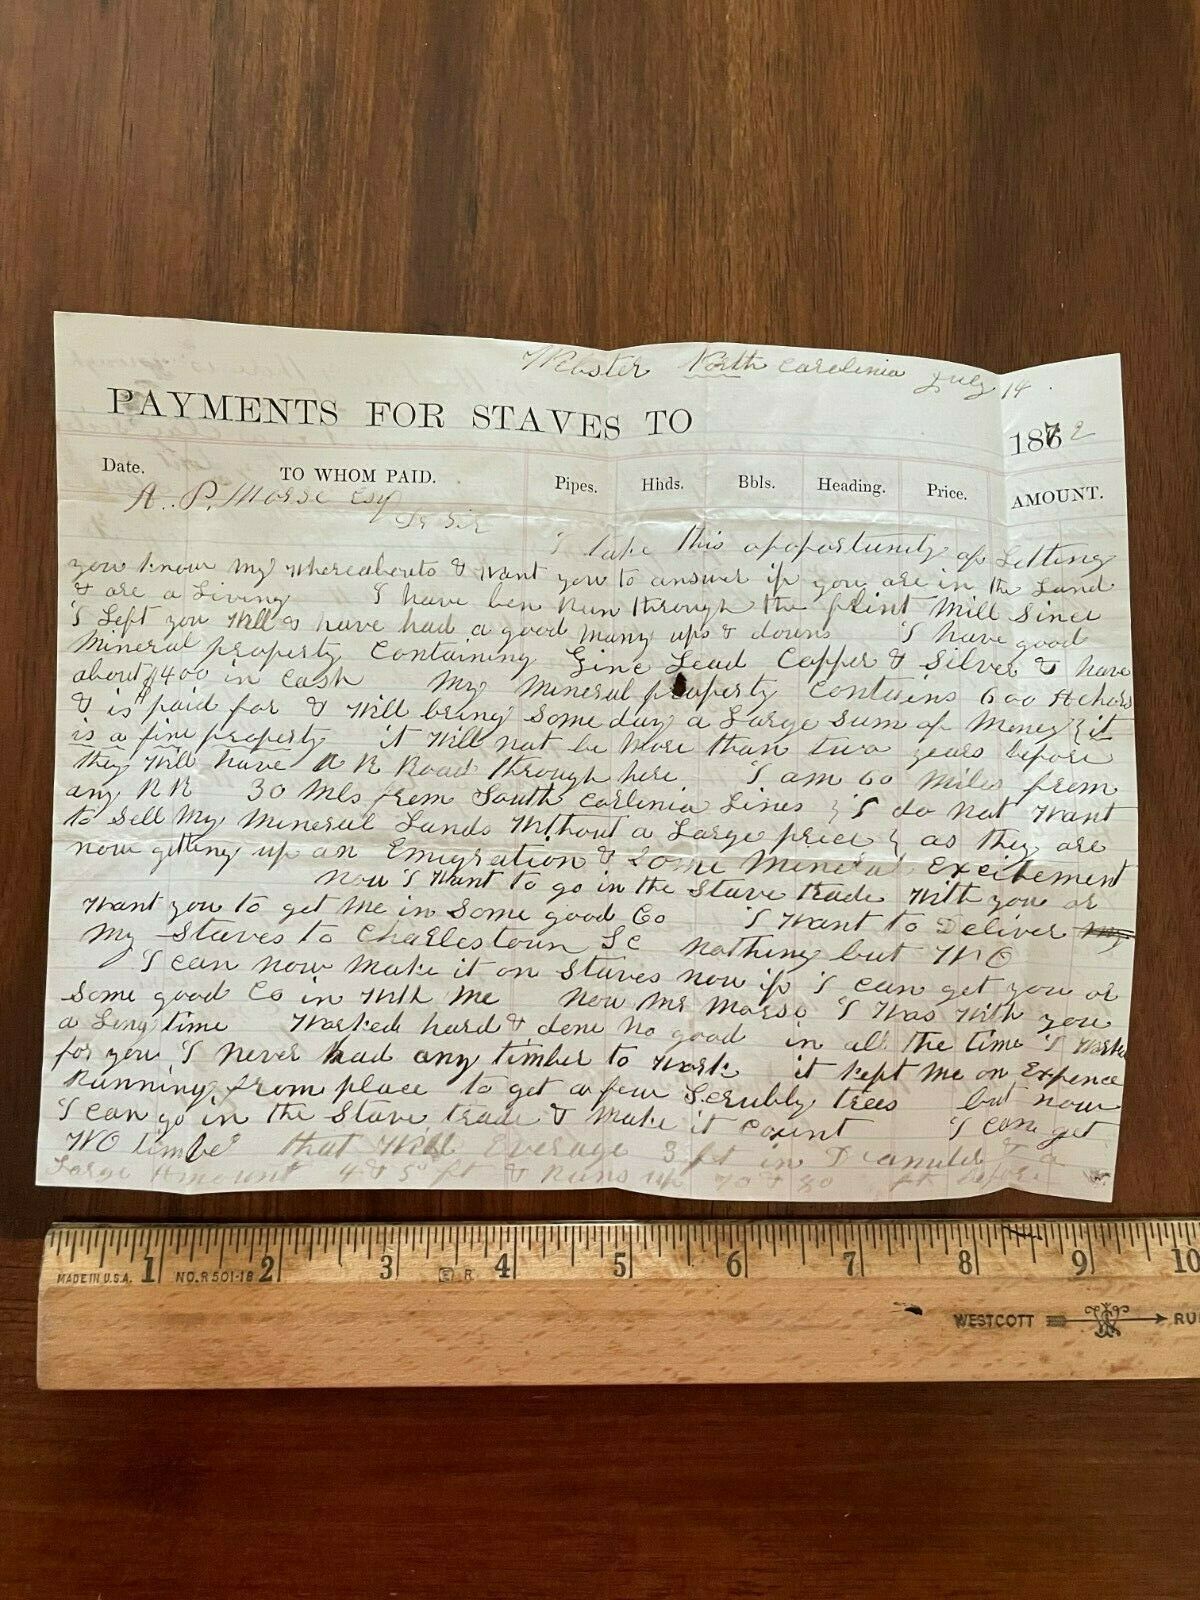 Webster North Carolinia July 14
PAYMENTS FOR STAVES TO
1872
Date. TO WHOM PAID. Pipes. Hhds. Bbls. Heading. Price. AMOUNT.
A. P. Morse Esq
Dr Sir
I take this opoportunity of Letting
you know my whereabouts & want you to answer if you are in the Land
& are a Living I have ben Run through the flint Mill Since
I Left you Well & have had a good many ups & downs I have good
Mineral property Containing Zinc Lead Copper & Silver & have
about $400 in Cash My Mineral property Contains 600 Achors
& is paid for & Will bring Some day a Large Sum of Money & it
is a fine property it Will not be More than two years before
they Will have A R Road through here I am 60 Miles from
any RR 30 Mls from South Carlinia Lines & I do not Want
to Sell My Mineral Lands Without a Large price & as they are
now getting up an Emigration & Some Mineral Excitement
Now I Want to go in the Stave trade With you or
Want you to get Me in Some good Co I Want to Deliver my
My Staves to Charlestown SC nothing but WO
I can now Make it on Staves now if I can get you or
Some good Co in With Me Now Mr Morse I Was With you
a Long time Worked hard & done no good in all the time I Worke
for you I never had any timber to Work it kept Me on Expence
Running from place to get a few Scrubly trees but now
I can go in the Stave trade & Make it Count I can get
WO timber that Will Everage 3 ft in Diamiter & a
Large Amount 4 & 5 ft & Runs up 70 & 80 ft before
MADE IN U.S.A. NO. R501-18 1 2 3 4 5 6 7 8 9 10
WESTCOTT RU